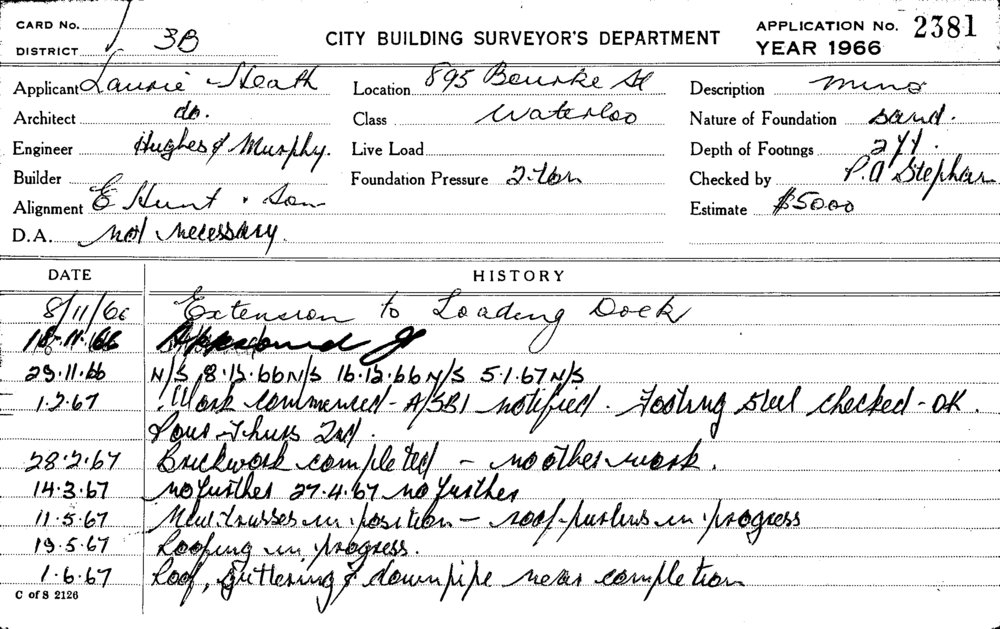 CARD No. APPLICATION No. 2381
DISTRICT 3B CITY BUILDING SURVEYOR'S DEPARTMENT YEAR 1966
Applicant Laurie Heath Location 895 Bourke St Description
Architect do. Class Waterloo Nature of Foundation sand.
Engineer Hughes & Murphy. Live Load Depth of Footings
Builder Foundation Pressure 2 ton Checked by P.A Stephen
Alignment E Hunt & Son Estimate $5000
D.A. Not necessary.
DATE HISTORY
8/11/66 Extension to Loading Dock
18.11.66 Approved
29.11.66 N/S 8.12.66 N/S 16.12.66 N/S 5.1.67 N/S
1.2.67 Work commenced - A/SBI notified. Footing steel checked - OK.
Pour Thurs 2nd.
28.2.67 Brickwork completed - no other work.
14.3.67 no further 27.4.67 no further
11.5.67 trusses in position - roof purlins in progress
19.5.67 Roofing in progress.
1.6.67 Roof, guttering & downpipe near completion
C of S 2126